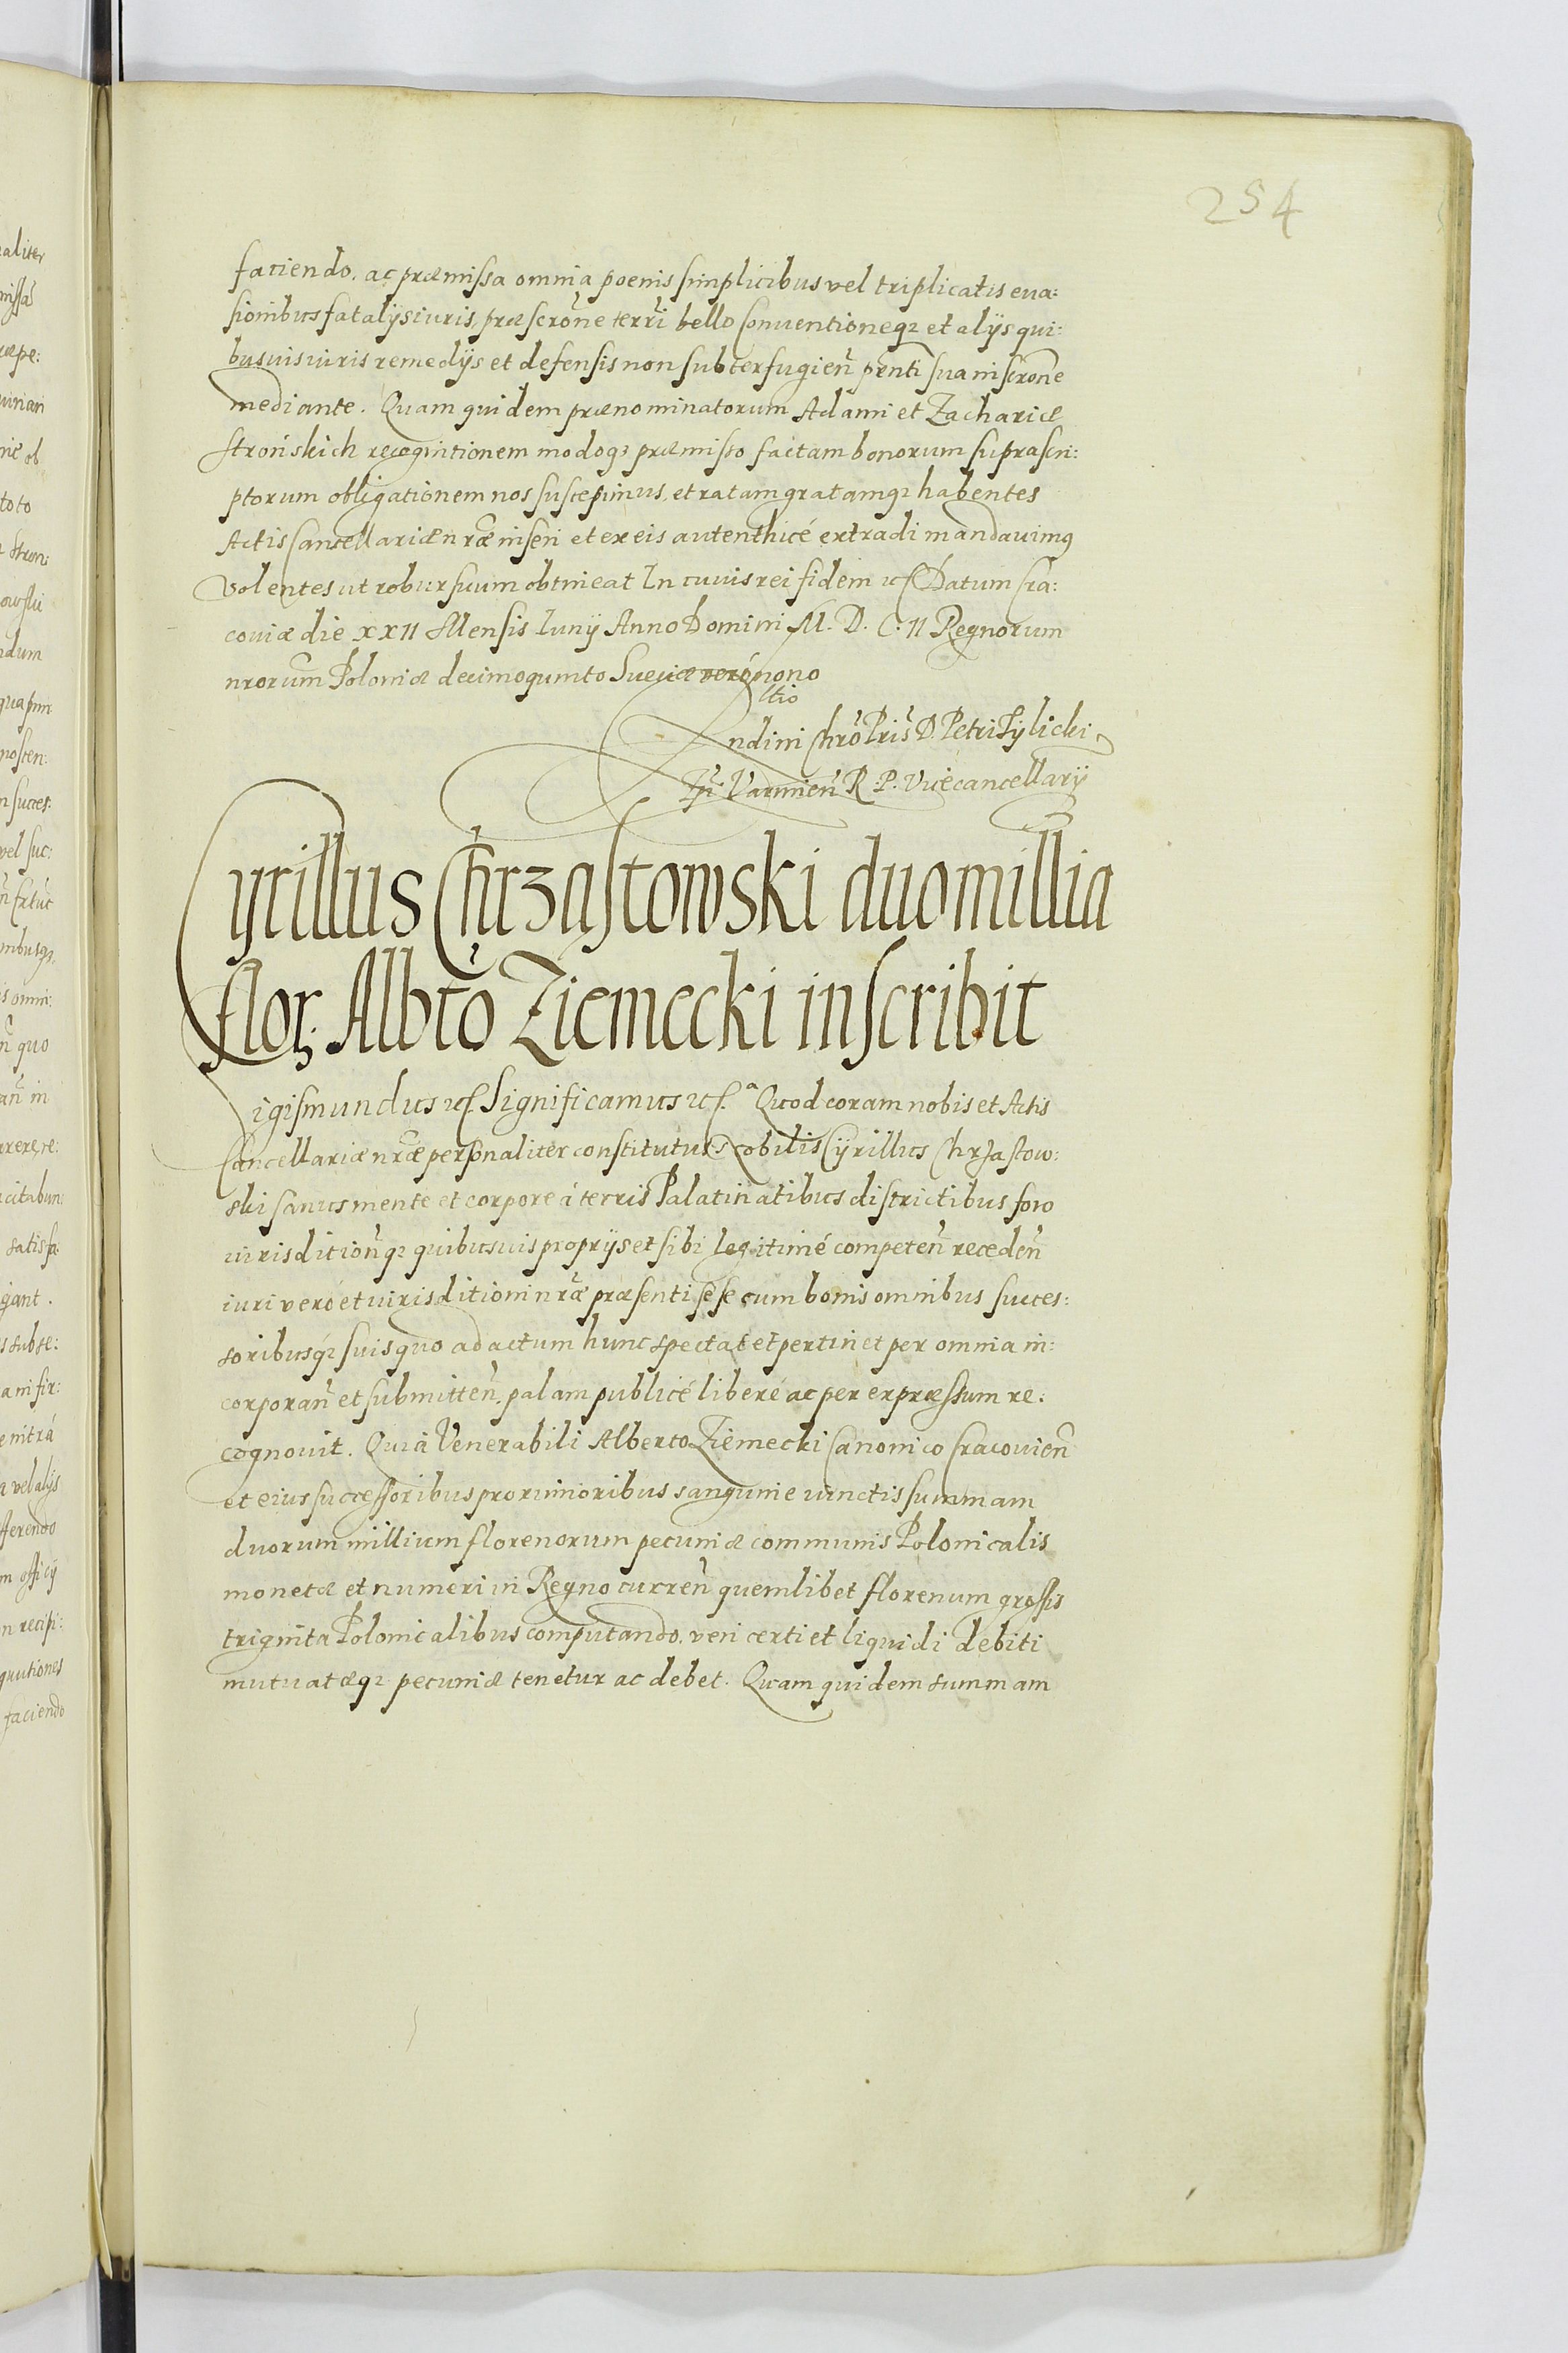 254
faciendo. ac præmissa omnia poenis simplicibus vel triplicatis eua:
sionibus fatalijs iuris, præscrõne terrĩ bello Conuentioneq3 et alijs qui:
busuis iuris remedijs et defensis non subterfugieñ pñti sua inscrõne
mediante. Quam quidem prænominatorum Adami et Zachariæ
Strońskich recognitionem modoq3 præmisso factam bonorum suprascri:
ptorum obligationem nos suscepimus, et ratam gratamq3 habentes
Actis Cancellariæ nr̃æ inseri et ex eis autenthicé extradi mandauimq
Volentes ut robur suum obtineat In cuius rei fidem etc Datum Cra:
couiæ die XXII Mensis Iunij Anno Domini M. D. C. II Regnorum
nrorum Poloniæ decimoquinto Sueciæ veró nono
ltio
ndini Chrõ Pris̃ D. Petri Tylicki
Ep̃i Varmieñ R. P. Vicecancellarij
Cyrillus Chrząstowski duo millia
flor: Albtõ Ziemecki inscribit
Sigismundus etc. Significamus etc. Quod coram nobis et Actis
Cancellariæ nr̃æ personaliter constitutus Nobilis Cyrillus Chrząstow:
ski sanus mente et corpore á terris Palatinatibus districtibus foro
iurisditioñq3 quibusuis proprijs et sibi legitimé competeñ recedeñ
iuri veró et iurisditioni nr̃æ præsenti sese cum bonis omnibus succes:
soribusq3 suis quo ad actum hunc spectat et pertinet per omnia in:
corporañ et submitteñ. palam publicé liberé ac per expræssum re:
cognouit. Quia Venerabili Alberto Ziemecki Canonico Cracouieñ
et eius successoribus proximioribus sanguine iunctis summam
duorum millium florenorum pecuniæ communis Polonicalis
monetæ et numeri in Regno curreñ quemlibet florenum grossis
triginta Polonicalibus computando. veri certi et liquidi debiti
mutuatæq3 pecuniæ tenetur ac debet. Quam quidem summam